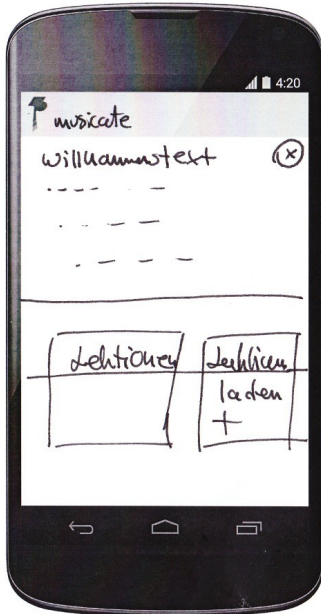 4:20
musicate
Willkommenstext
x
Lektionen
Lektionen
laden
+